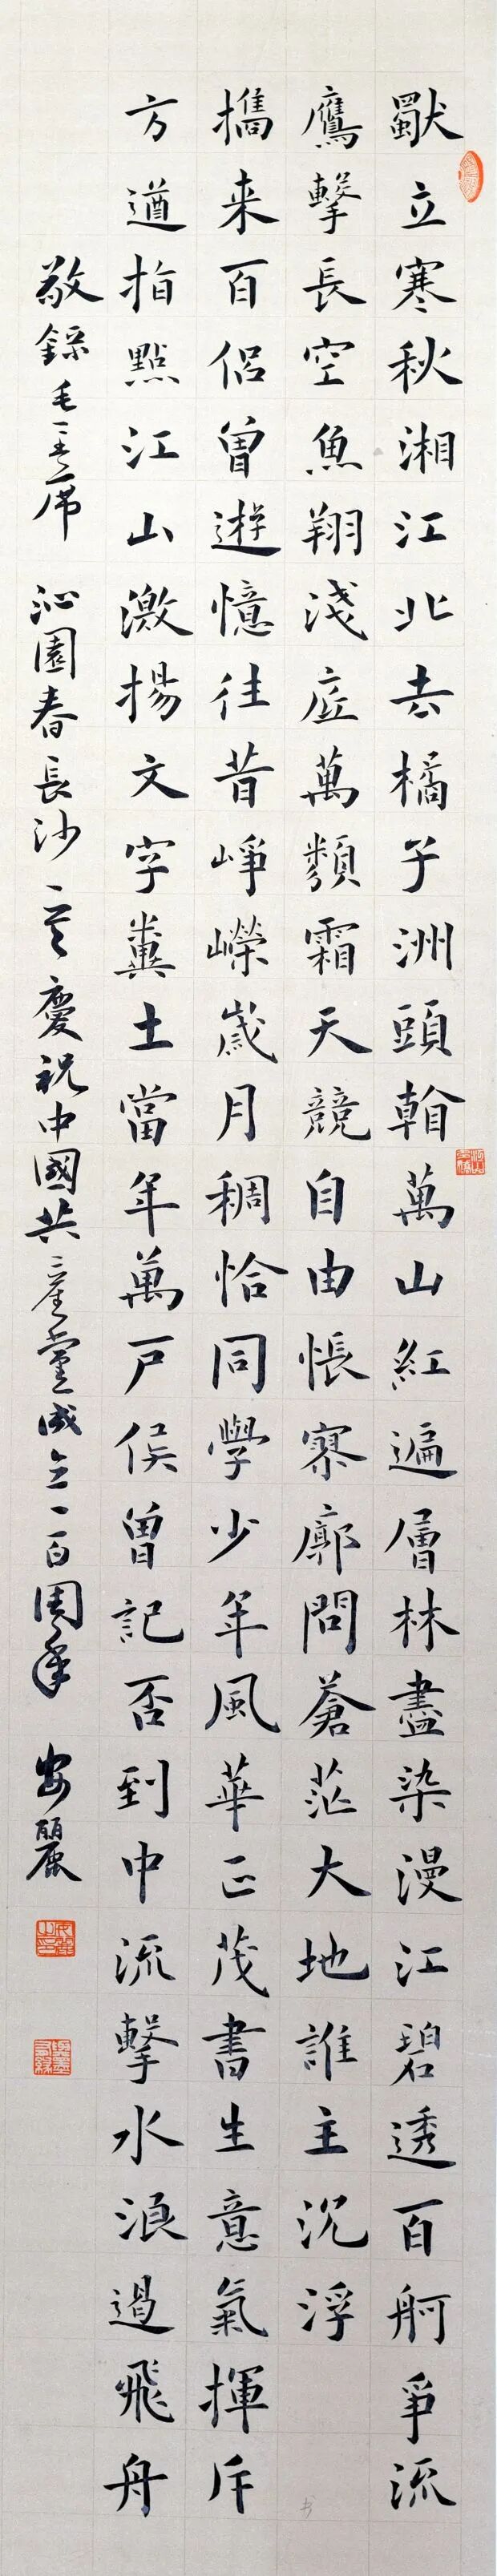 獨立寒秋湘江北去橘子洲頭看萬山紅遍層林盡染漫江碧透百舸爭流
鷹擊長空魚翔淺底萬類霜天競自由悵寥廓問蒼茫大地誰主沉浮
攜来百侶曾遊憶往昔崢嶸歲月稠恰同學少年風華正茂書生意氣揮斥
方遒指點江山激揚文字糞土當年萬戶侯曾記否到中流擊水浪遏飛舟
敬録毛主席 沁園春長沙一首慶祝中國共產黨成立一百周年 安麗